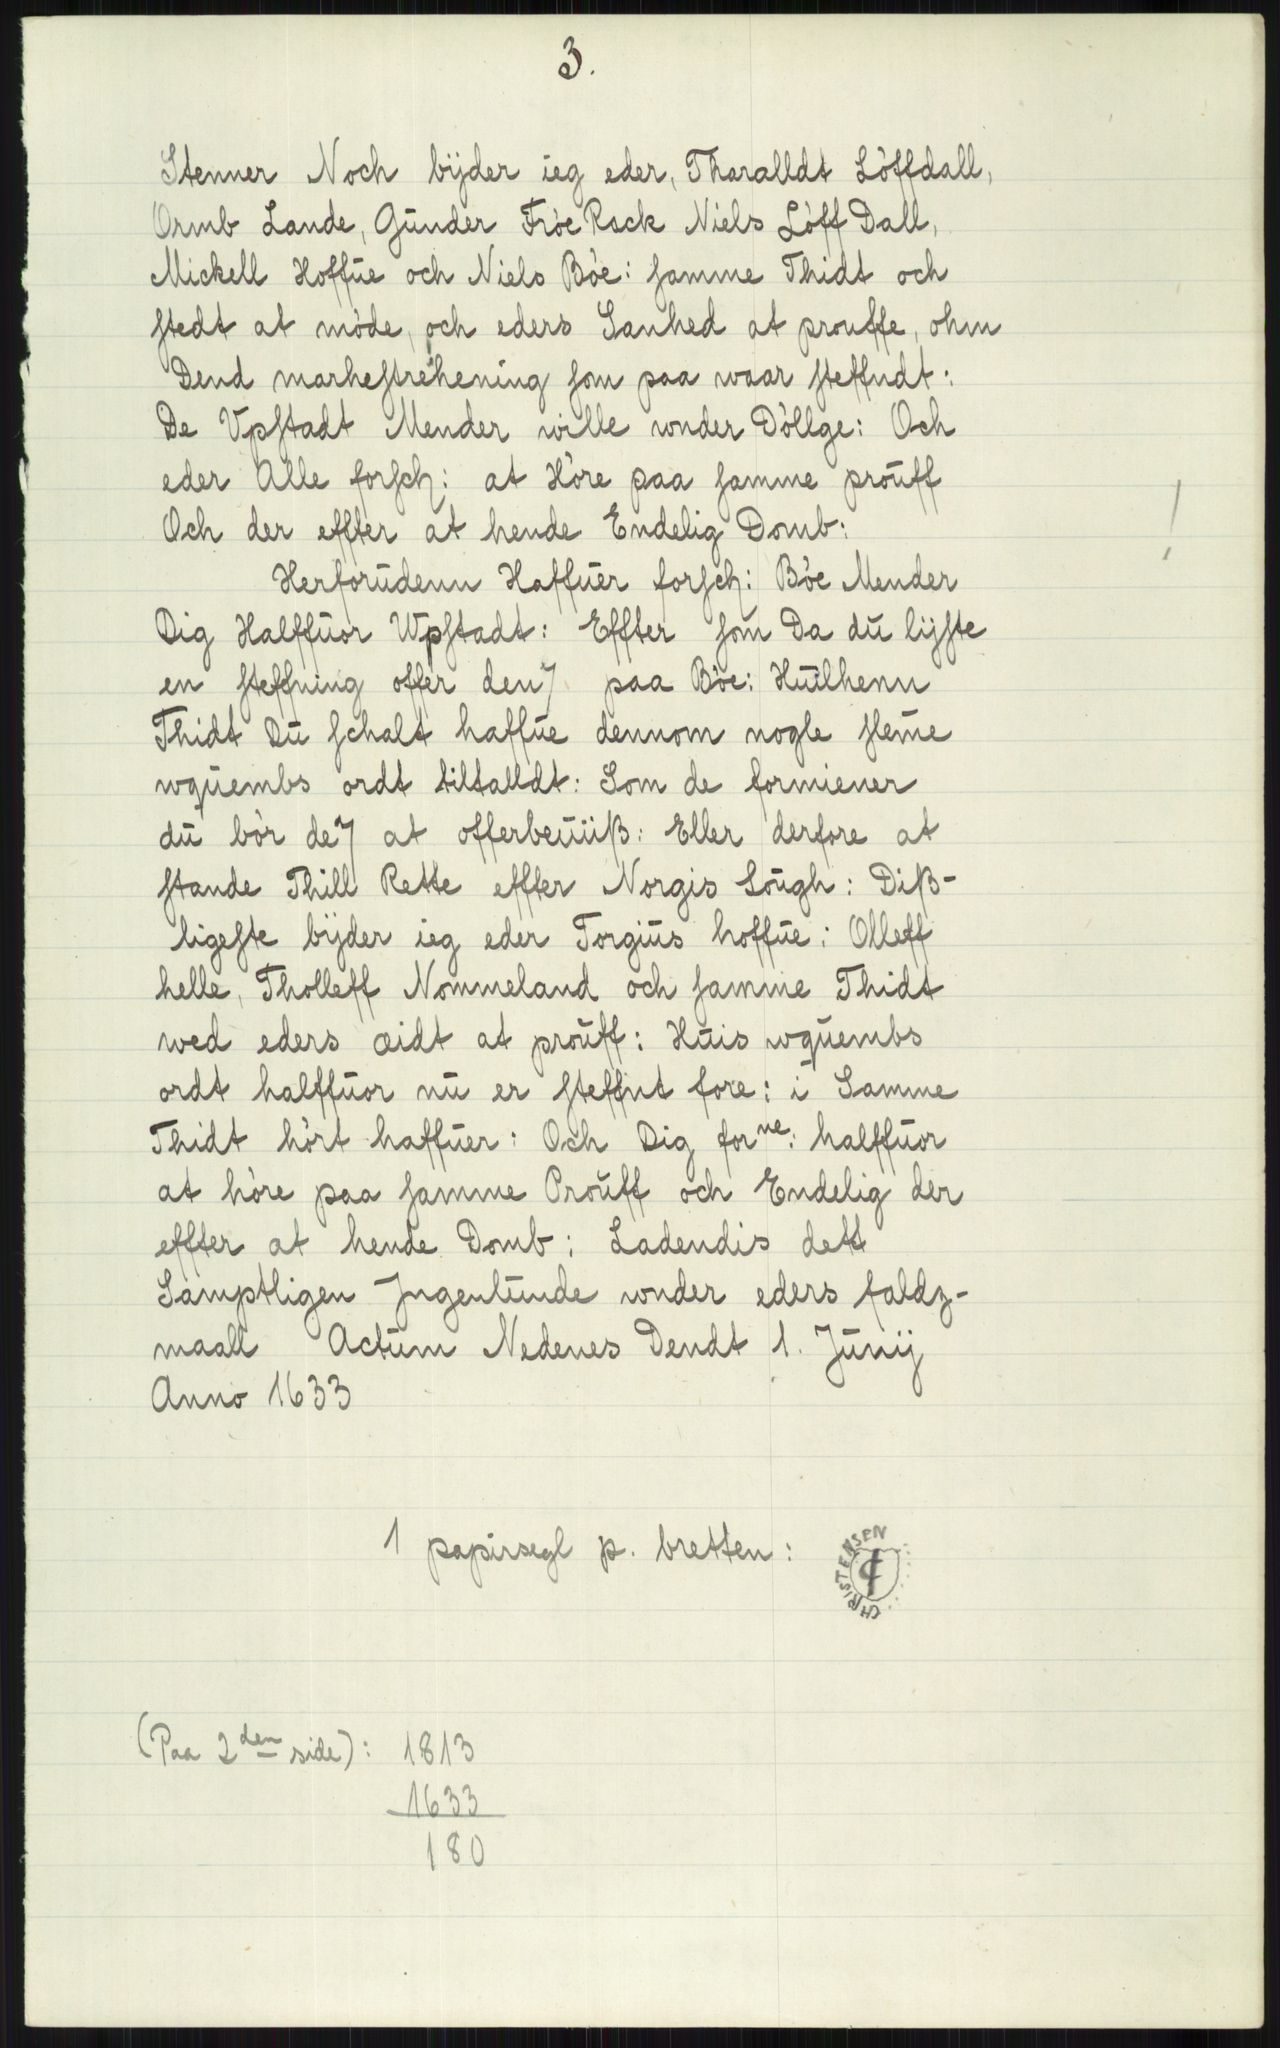 3.
Stenner Noch bijder ieg eder, Tharalldt Lòffdall,
Ormb Lande, Gūnder Fròe Rock Niels Lòff Dall,
Mickell Hoffūe och Niels Bòe: samme Thidt och
stedt at mòde, och eders Sanhed at prouffe, ohm
Dend marhestrehening som paa waar steffndt:
De Vpstadt Mender wille wnder Dòllge: Och
eder Alle forsch: at Hòre paa samme proūff
Och der effter at hende Endelig Domb:
Herforūdenn Haffūer forsch: Bòe Mender
Dig Halffūor Wpstadt: Effter som Da dū lijste
en steffning offer den paa Bòe: Hūilhenn
Thidt Dū schalt haffūe dennom nogle sleme
wqūembs ordt tiltalldt: Som de formiener
dū bòr de at offerbeūiiß: Eller derfore at
stande Thill Rette effter Norgis Loūgh: Diß-
ligeste bijder ieg eder Torgiūs hoffūe: Olleff
helle, Tholleff Nommeland och samme Thidt
wed eders æidt at proūff: Hūis wqūembs
ordt halffūor nū er steffnt fore: i Samme
Thidt hòrt haffūer: Och Dig forne: halffūor
at hòre paa samme Proūff och Endelig der
effter at hende Domb: Ladendis dett
Samptligen Jngenlūnde wnder eders faldz-
maall Actūm Nedenes Dendt 1. Jūnij
Anno 1633
!
1 papirsegl p. bretten:
CHRISTENSEN
(Paa 2den side): 1813
1633
180